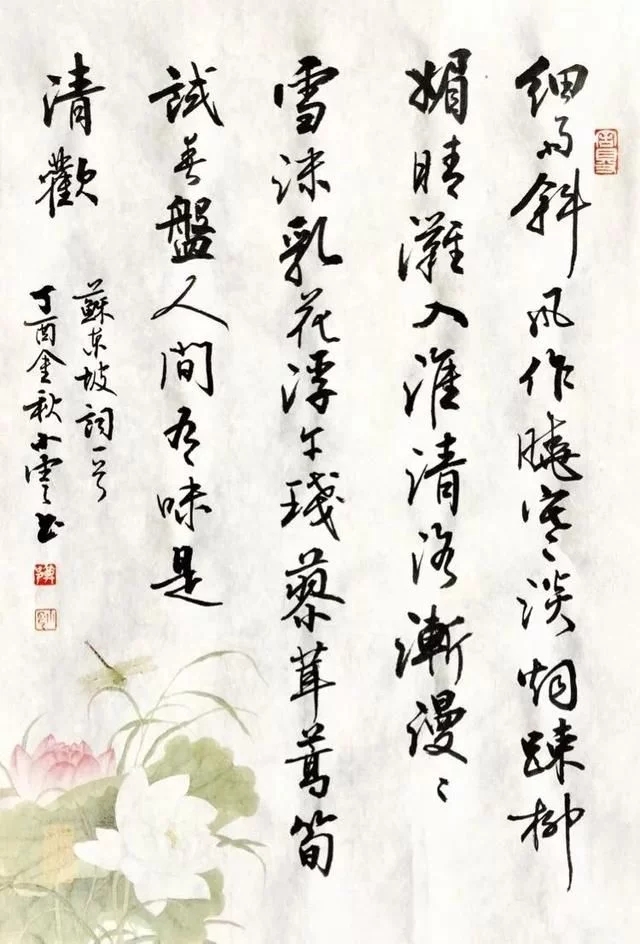 細雨斜風作曉寒淡烟踈柳
媚晴灘入淮清洛漸漫〻
雪沫乳花浮午琖蓼茸蒿筍
試春盤人間有味是
清歡
蘇東坡詞一首
丁酉金秋小雲书